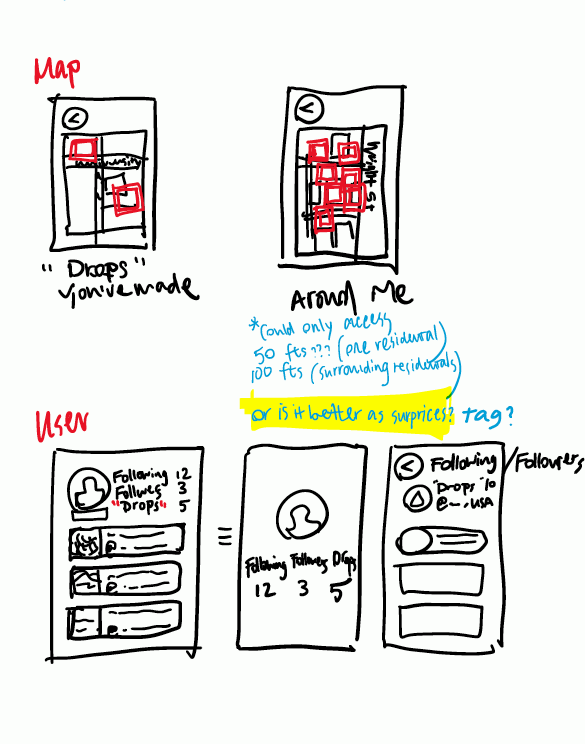 Map
"Drops"
you've made
Around Me
*Could only access
50 fts??? (one residential)
100 fts (surrounding residentials)
or is it better as surprices? tag?
User
Following 12
Follwes 3
"Drops" 5
@
@
@
Following Followers Drops
12 3 5
Following/Followers
"Drops" 10
@~, USA